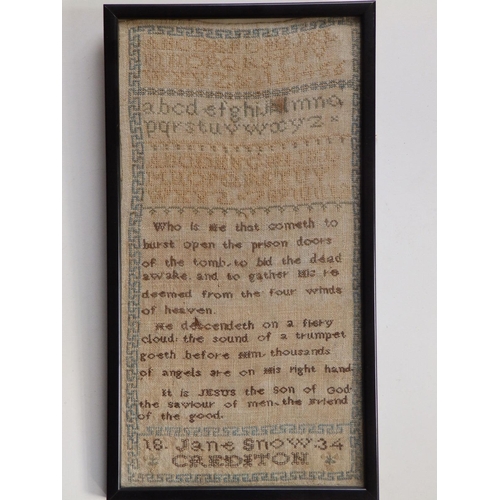 abcdefghijklmno
pqrstuvwxyz
Who is He that cometh to
burst open the prison doors
of the tomb, to bid the dead
awake, and to gather His re
deemed from the four winds
of heaven.
He descendeth on a fiery
cloud: the sound of a trumpet
goeth before Him, thousands
of angels are on His right hand.
It is JESUS the Son of God
the saviour of men, the friend
of the good.
18. Jane Snow 34
CREDITON